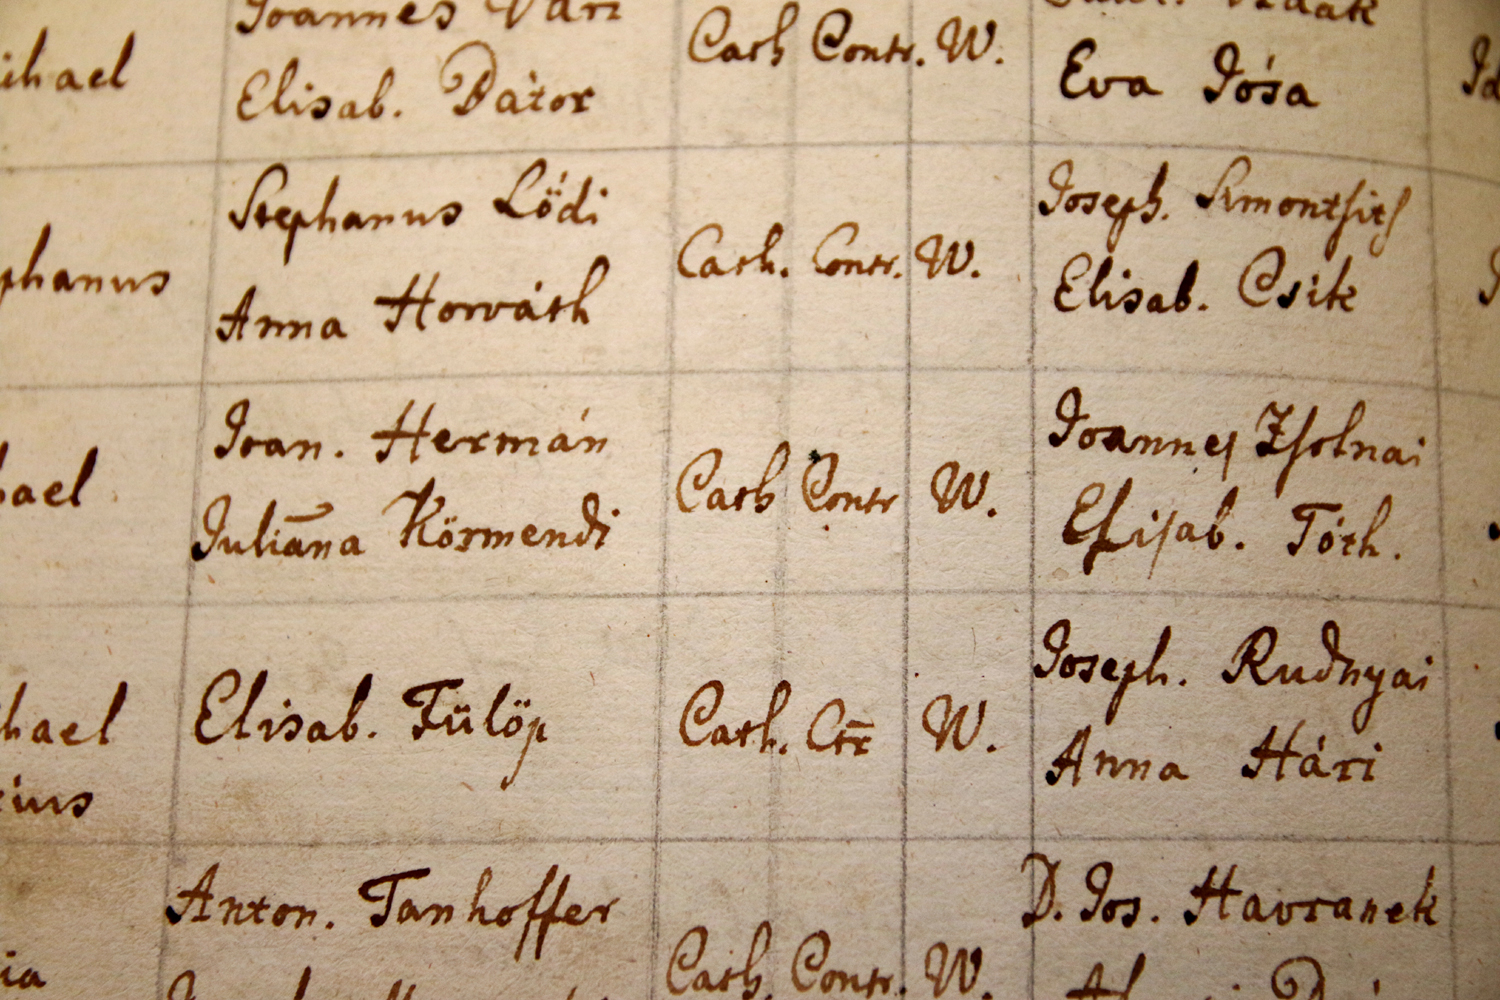 ihael
Joannes Vári
Elisab. Bátor
Cath Contr. W.
Eva Jósa
phanus
Stephanus Lödi
Anna Horváth
Cath. Contr. W.
Joseph. Simontsits
Elisab. Csik
hael
Joan. Hermán
Juliana Körmendi
Cath Contr W.
Joannes Zsolnai
Elisab. Tóth.
hael
ius
Elisab. Fülöp
Cath. Ctr W.
Joseph. Rudnyai
Anna Hári
ia
Anton. Tanhoffer
Cath. Contr. W.
D. Jos. Havranek